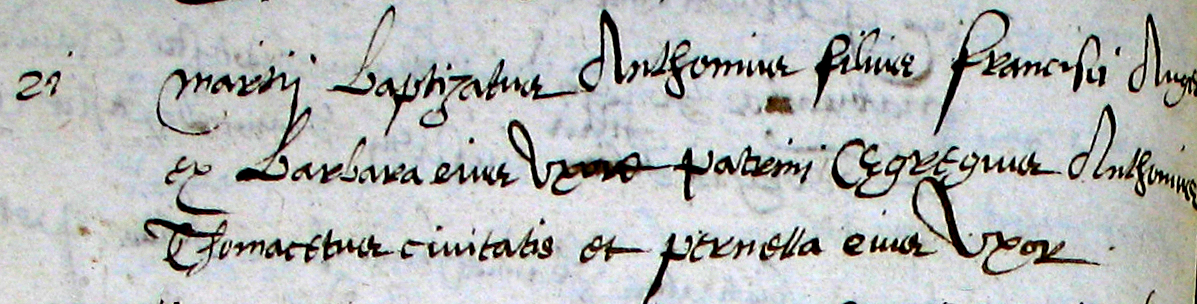 21 martij baptizatus Anthonius filius Francisci
ex Barbara eius Uxore patrini Egregius Anthonius
Thomacetus civitatis et pernella eius Uxor